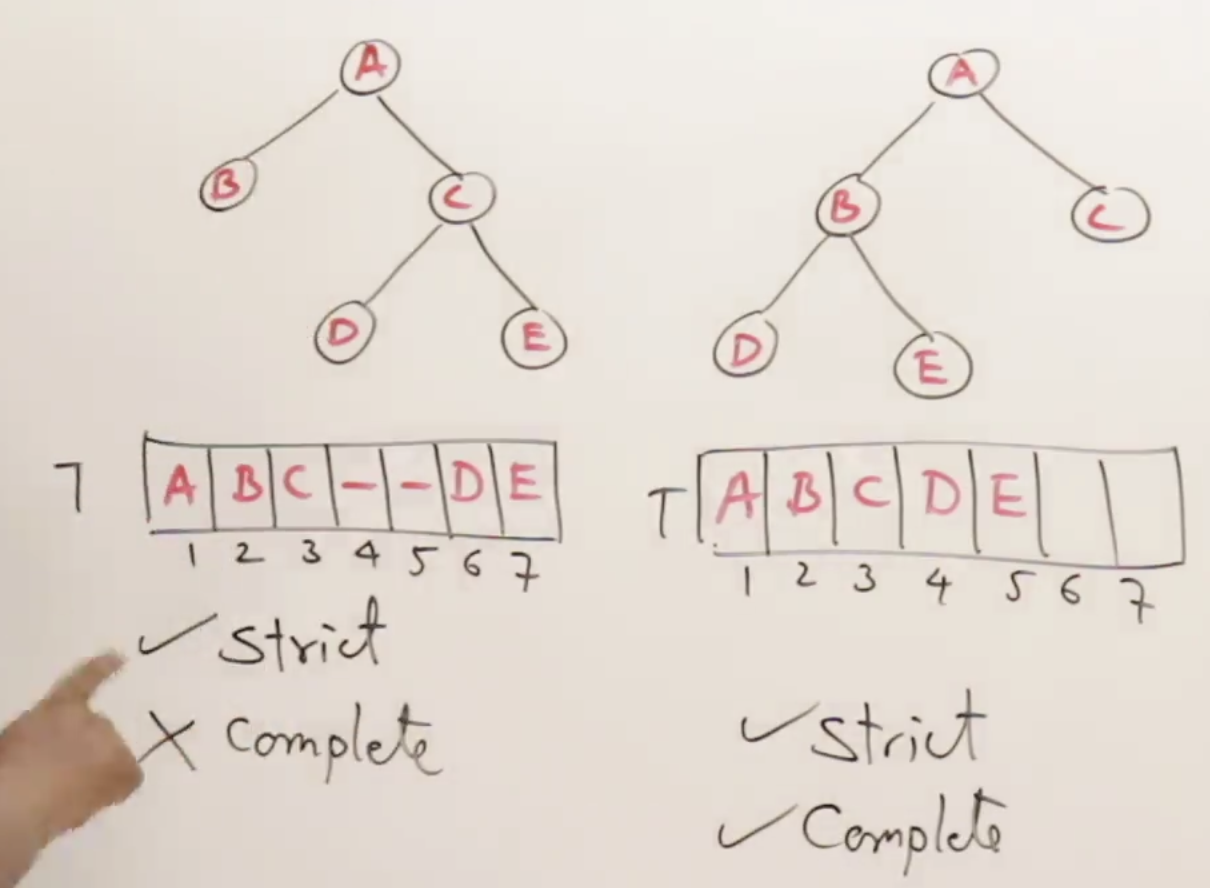 A
B
C
D
E
T A B C - - D E
1 2 3 4 5 6 7
✓ Strict
X Complete
A
B
C
D
E
T A B C D E
1 2 3 4 5 6 7
✓ Strict
✓ Complete